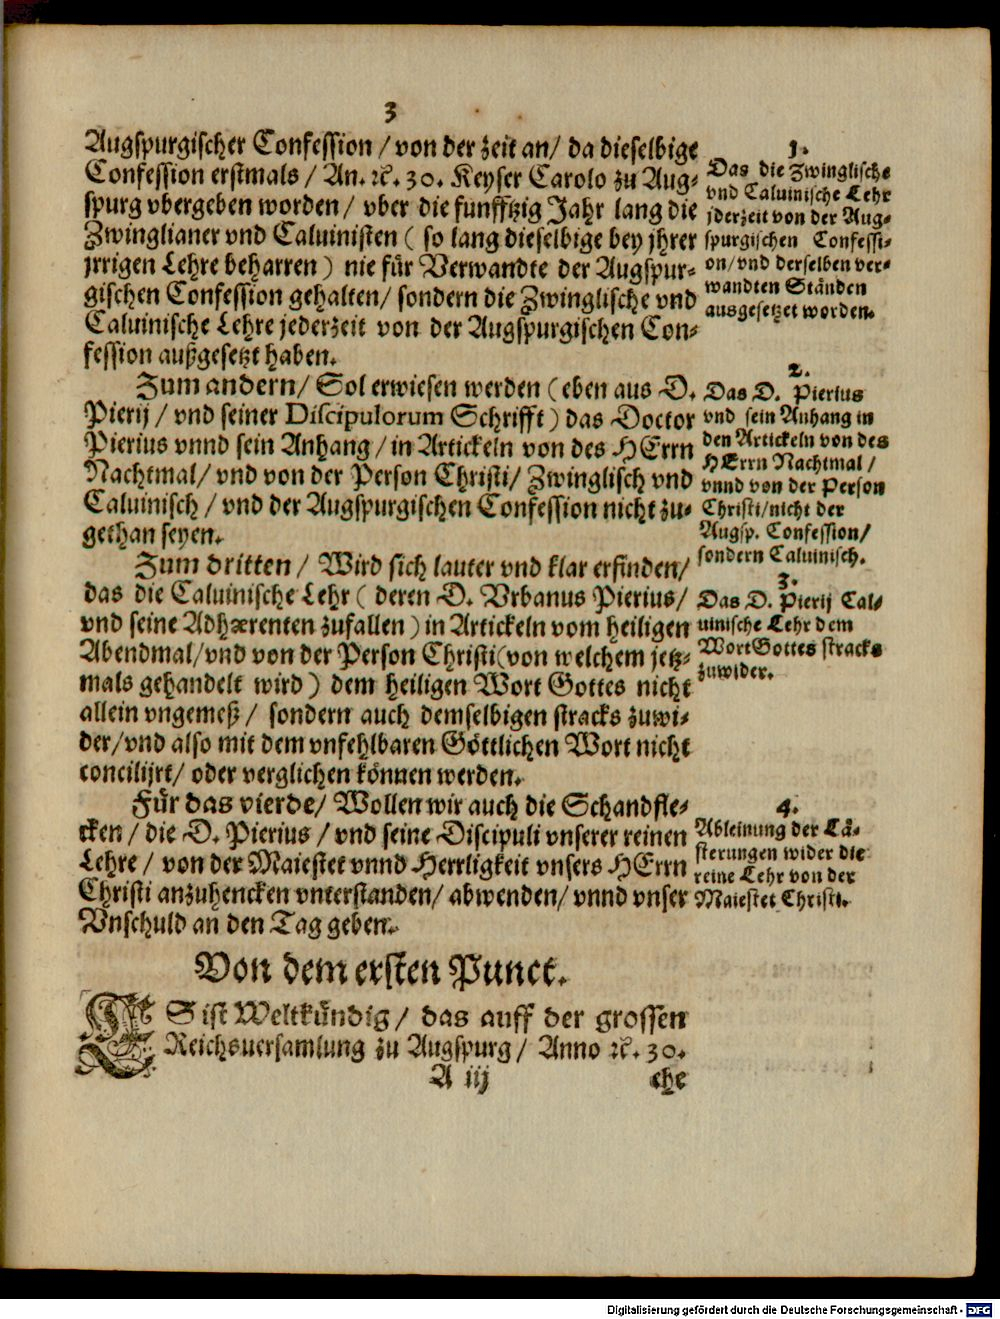 3
Augspurgischer Confession / von der zeit an / da dieselbige
Confession erstmals / An. ꝛc. 30. Keyser Carolo zu Aug-
spurg vbergeben worden / vber die funfftzig Jahr lang die
Zwinglianer vnd Caluinisten ( so lang dieselbige bey jhrer
jrrigen Lehre beharren ) nie für Verwandte der Augspur-
gischen Confession gehalten / sondern die Zwinglische vnd
Caluinische Lehre jederzeit von der Augspurgischen Con-
fession außgesetzt haben.
1.
Das die Zwinglische
vnd Caluinische Lehr
jderzeit von der Aug-
spurgischen Confessi-
on / vnd derselben ver-
wandten Ständen
ausgesetzet worden.
Zum andern / Sol erwiesen werden ( eben aus D.
Pierij / vnd seiner Discipulorum Schrifft ) das Doctor
Pierius vnnd sein Anhang / in Artickeln von des HErrn
Nachtmal / vnd von der Person Christi / Zwinglisch vnd
Caluinisch / vnd der Augspurgischen Confession nicht zu-
gethan seyen.
2.
Das D. Pierius
vnd sein Anhang in
den Artickeln von des
HErrn Nachtmal /
vnnd von der Person
Christi / nicht der
Augsp. Confession /
sondern Caluinisch.
Zum dritten / Wird sich lauter vnd klar erfinden /
das die Caluinische Lehr ( deren D. Vrbanus Pierius /
vnd seine Adhærenten zufallen ) in Artickeln vom heiligen
Abendmal / vnd von der Person Christi ( von welchem jetz-
mals gehandelt wird ) dem heiligen Wort Gottes nicht
allein vngemeß / sondern auch demselbigen stracks zuwi-
der / vnd also mit dem vnfehlbaren Göttlichen Wort nicht
concilijrt / oder verglichen können werden.
3.
Das D. Pierij Cal-
uinische Lehr dem
Wort Gottes stracks
zuwider.
Für das vierde / Wollen wir auch die Schandfle-
cken / die D. Pierius / vnd seine Discipuli vnserer reinen
Lehre / von der Maiestet vnnd Herrligkeit vnsers HErrn
Christi anzuhencken vnterstanden / abwenden / vnnd vnser
Vnschuld an den Tag geben.
4.
Ableinung der Lä-
sterungen wider die
reine Lehr von der
Maiestet Christi.
Von dem ersten Punct.
ES ist Weltkündig / das auff der grossen
Reichsuersamlung zu Augspurg / Anno ꝛc. 30.
A iij
che
Digitalisierung gefördert durch die Deutsche Forschungsgemeinschaft - DFG